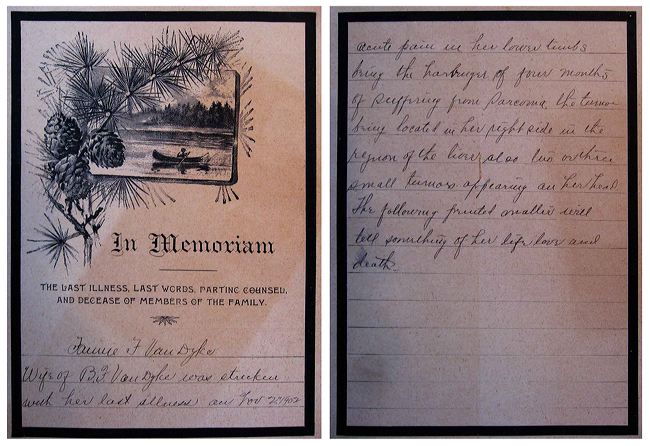 In Memoriam
THE LAST ILLNESS, LAST WORDS, PARTING COUNSEL,
AND DECEASE OF MEMBERS OF THE FAMILY.
Fannie F Van Dyke
Wife of B.F. Van Dyke was stricken
with her last illness on Nov 2 1902
acute pain in her lower limbs
being the harbinger of four months
of suffering from sarcoma, the tumor
being located in her right side in the
region of the liver, also two or three
small tumors appearing on her head.
The following printed matter will
tell something of her life love and
death.